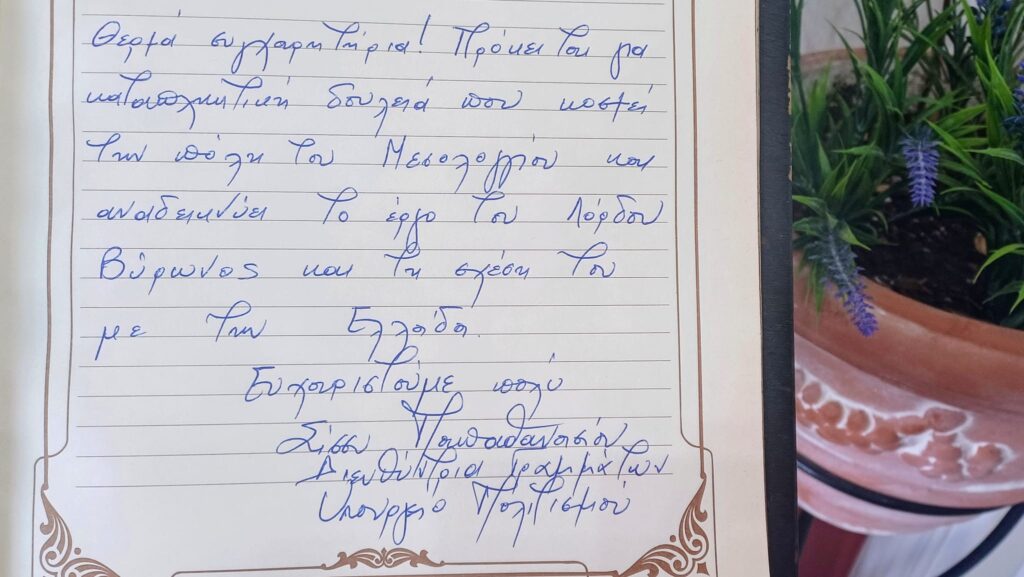 Θερμά συγχαρητήρια! Πρόκειται για
καταπληκτική δουλειά που κοσμεί
την πόλη του Μεσολογγίου και
αναδεικνύει το έργο του Λόρδου
Βύρωνος και τη σχέση του
με την Ελλάδα.
Ευχαριστούμε πολύ
Σίσσυ Παπαθανασίου
Διευθύντρια Γραμμάτων
Υπουργείο Πολιτισμού